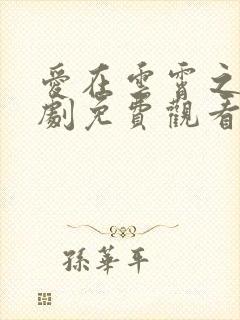 愛在雲霄之
劇免費觀看
孫華平